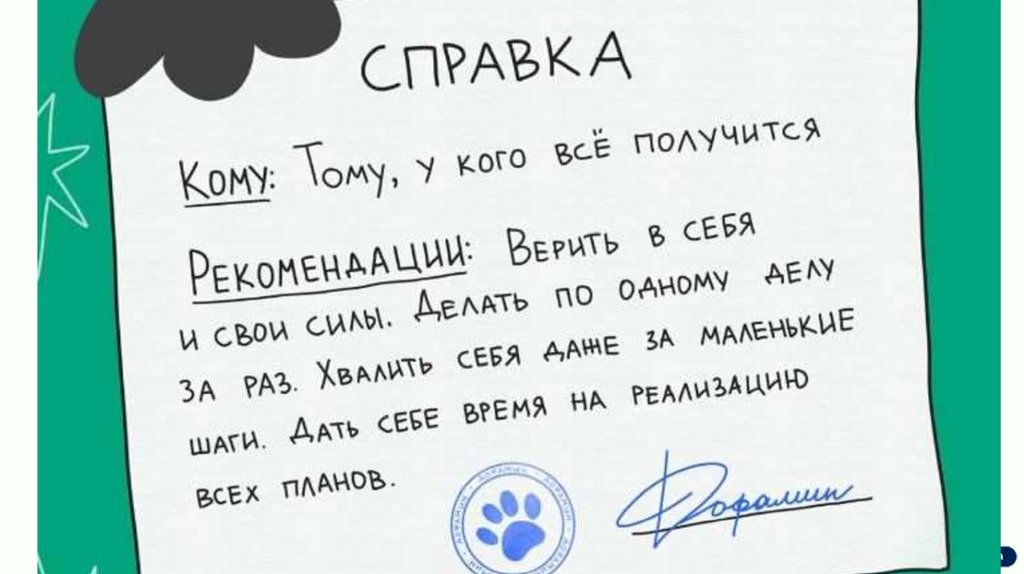 СПРАВКА
Кому: Тому, у кого всё получится
Рекомендации: Верить в себя
и свои силы. Делать по одному делу
за раз. Хвалить себя даже за маленькие
шаги. Дать себе время на реализацию
всех планов.
Дофамин